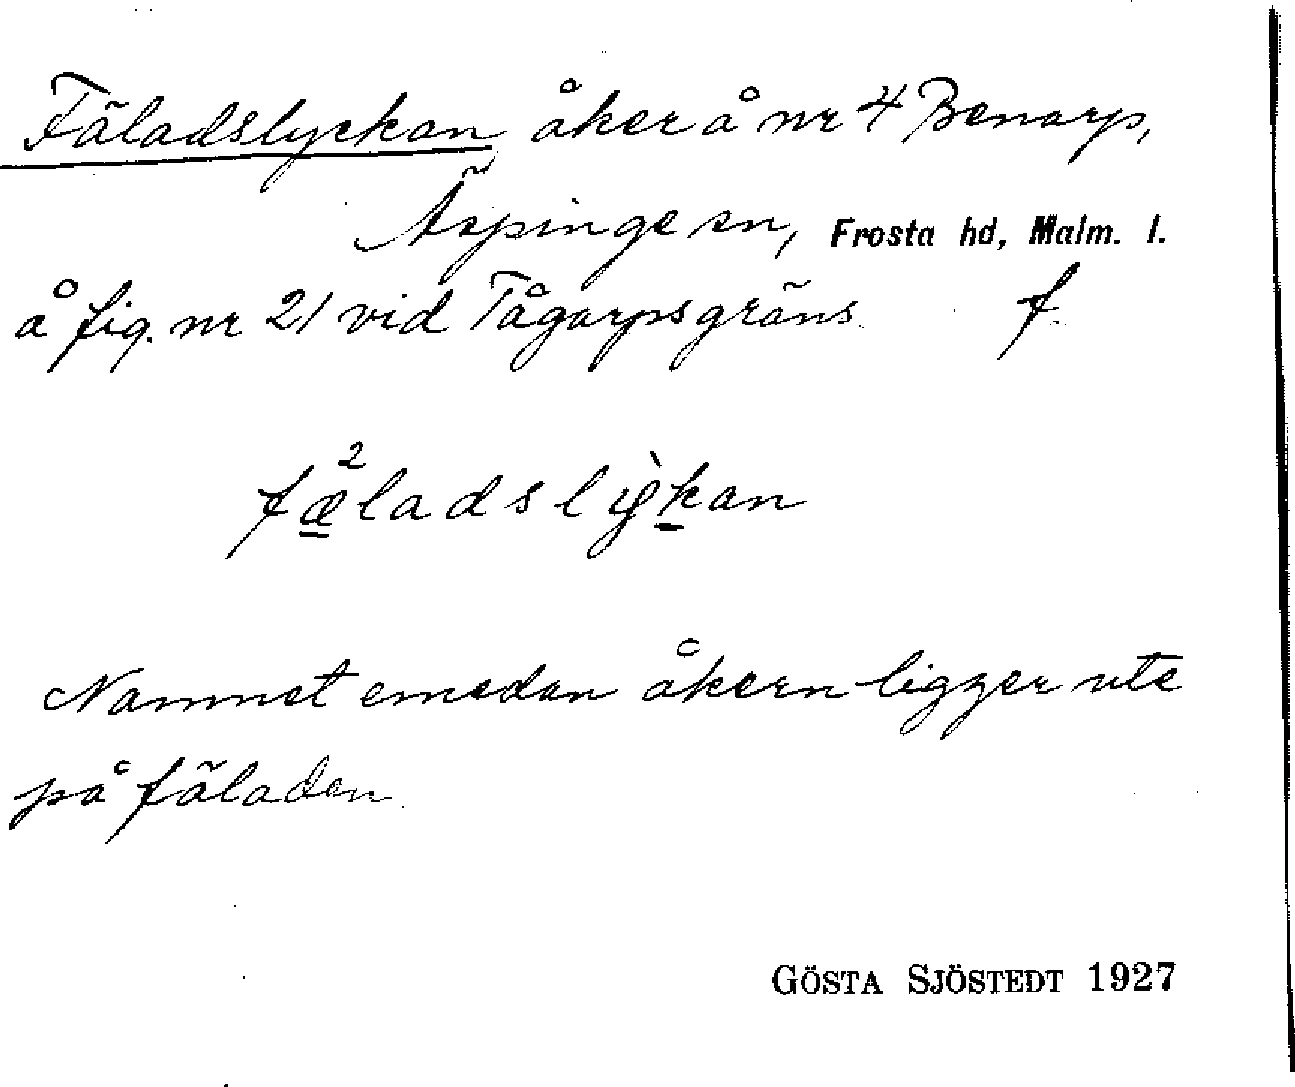 Fäladslyckan åker å nr 4 Benarp,
Äspinge sn, Frosta hd, Malm. l.
å fig. nr 21 vid Tågarps gräns. f.
fæ²ladslỳkan
Namnet emedan åkern ligger ute
på fäladen.
GÖSTA SJÖSTEDT 1927